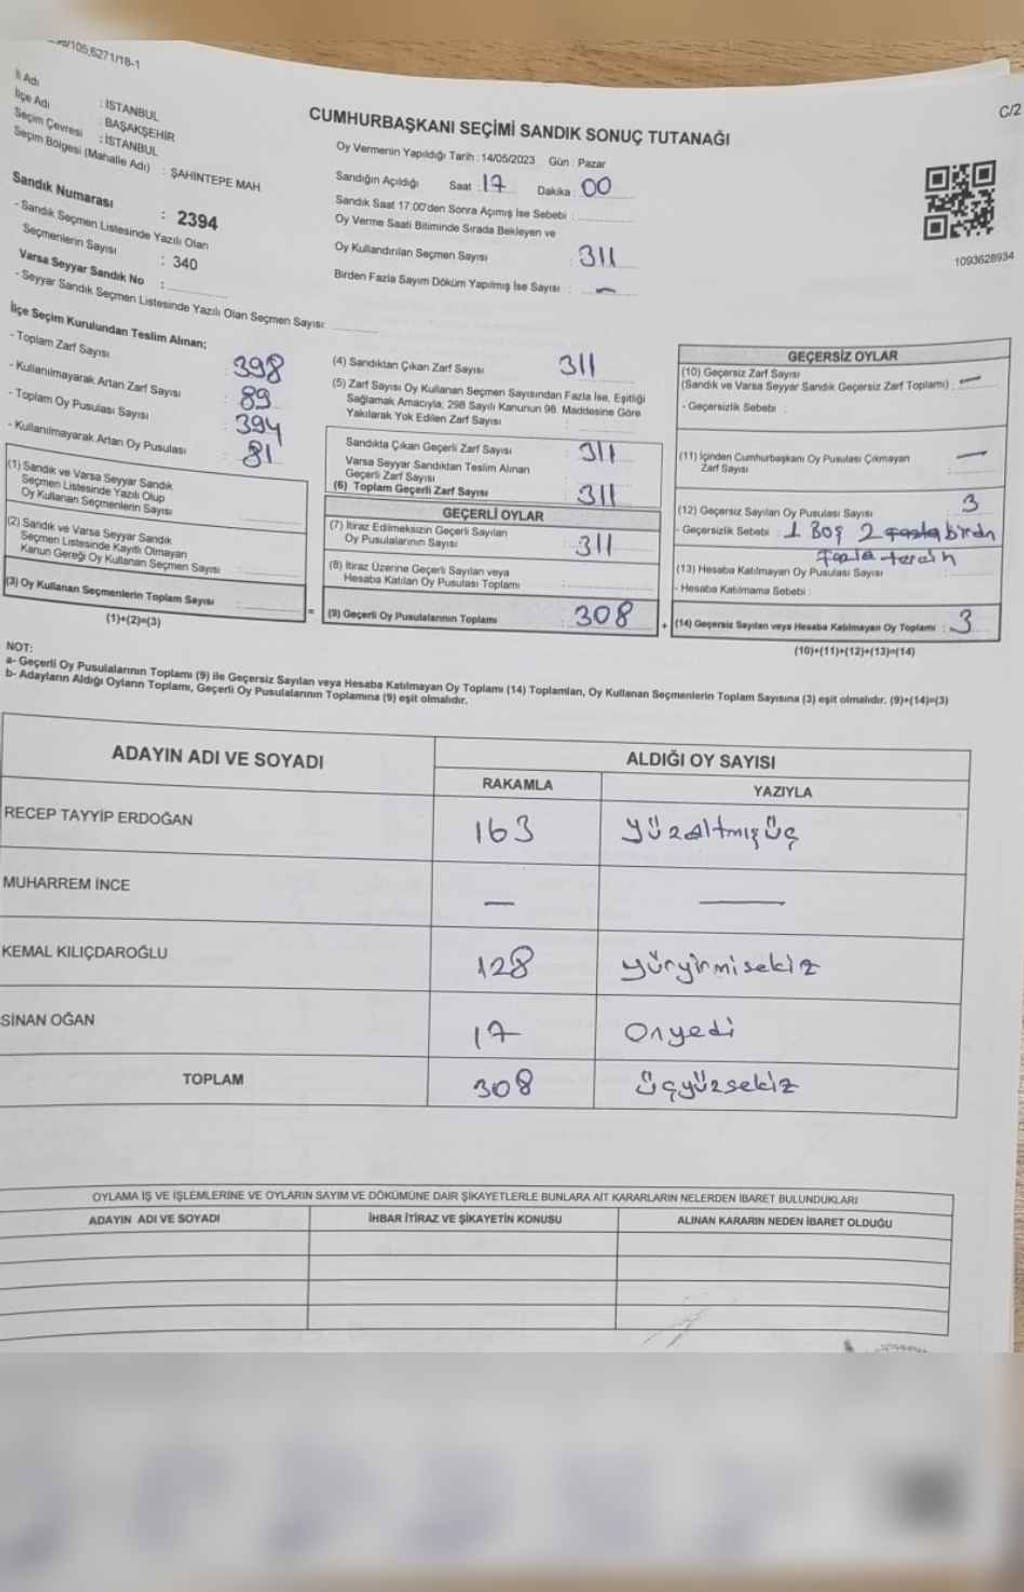 /105,6271/18-1
C/2
İl Adı : İSTANBUL
İlçe Adı : BAŞAKŞEHİR
Seçim Çevresi : İSTANBUL
Seçim Bölgesi (Mahalle Adı) : ŞAHİNTEPE MAH
Sandık Numarası : 2394
- Sandık Seçmen Listesinde Yazılı Olan
Seçmenlerin Sayısı : 340
Varsa Seyyar Sandık No :
- Seyyar Sandık Seçmen Listesinde Yazılı Olan Seçmen Sayısı:
CUMHURBAŞKANI SEÇİMİ SANDIK SONUÇ TUTANAĞI
Oy Vermenin Yapıldığı Tarih : 14/05/2023 Gün : Pazar
Sandığın Açıldığı Saat : 17 Dakika : 00
Sandık Saat 17:00'den Sonra Açımış İse Sebebi :
Oy Verme Saati Bitiminde Sırada Bekleyen ve
Oy Kullandırılan Seçmen Sayısı : 311
Birden Fazla Sayım Döküm Yapılmış İse Sayısı : —
1093628934
İlçe Seçim Kurulundan Teslim Alınan;
- Toplam Zarf Sayısı : 398
- Kullanılmayarak Artan Zarf Sayısı : 89
- Toplam Oy Pusulası Sayısı : 394
- Kullanılmayarak Artan Oy Pusulası : 81
(1) Sandık ve Varsa Seyyar Sandık
Seçmen Listesinde Yazılı Olup
Oy Kullanan Seçmenlerin Sayısı :
(2) Sandık ve Varsa Seyyar Sandık
Seçmen Listesinde Kayıtlı Olmayan
Kanun Gereği Oy Kullanan Seçmen Sayısı :
(3) Oy Kullanan Seçmenlerin Toplam Sayısı :
(1)+(2)=(3)
=
(4) Sandıktan Çıkan Zarf Sayısı : 311
(5) Zarf Sayısı Oy Kullanan Seçmen Sayısından Fazla İse, Eşitliği
Sağlamak Amacıyla; 298 Sayılı Kanunun 98. Maddesine Göre
Yakılarak Yok Edilen Zarf Sayısı :
Sandıkta Çıkan Geçerli Zarf Sayısı : 311
Varsa Seyyar Sandıktan Teslim Alınan
Geçerli Zarf Sayısı :
(6) Toplam Geçerli Zarf Sayısı : 311
GEÇERLİ OYLAR
(7) İtiraz Edilmeksizin Geçerli Sayılan
Oy Pusulalarının Sayısı : 311
(8) İtiraz Üzerine Geçerli Sayılan veya
Hesaba Katılan Oy Pusulası Toplamı :
(9) Geçerli Oy Pusulalarının Toplamı : 308
+
GEÇERSİZ OYLAR
(10) Geçersiz Zarf Sayısı
(Sandık ve Varsa Seyyar Sandık Geçersiz Zarf Toplamı) : —
- Geçersizlik Sebebi :
(11) İçinden Cumhurbaşkanı Oy Pusulası Çıkmayan
Zarf Sayısı —
(12) Geçersiz Sayılan Oy Pusulası Sayısı : 3
- Geçersizlik Sebebi : 1 Boş 2 birdn
fazla tercih
(13) Hesaba Katılmayan Oy Pusulası Sayısı :
- Hesaba Katılmama Sebebi :
(14) Geçersiz Sayılan veya Hesaba Katılmayan Oy Toplamı : 3
(10)+(11)+(12)+(13)=(14)
NOT:
a- Geçerli Oy Pusulalarının Toplamı (9) ile Geçersiz Sayılan veya Hesaba Katılmayan Oy Toplamı (14) Toplamları, Oy Kullanan Seçmenlerin Toplam Sayısına (3) eşit olmalıdır. (9)+(14)=(3)
b- Adayların Aldığı Oyların Toplamı, Geçerli Oy Pusulalarının Toplamına (9) eşit olmalıdır.
ADAYIN ADI VE SOYADI ALDIĞI OY SAYISI
RAKAMLA YAZIYLA
RECEP TAYYİP ERDOĞAN 163 yüzaltmışüç
MUHARREM İNCE — —
KEMAL KILIÇDAROĞLU 128 yüzyirmisekiz
SİNAN OĞAN 17 Onyedi
TOPLAM 308 üçyüzsekiz
OYLAMA İŞ VE İŞLEMLERİNE VE OYLARIN SAYIM VE DÖKÜMÜNE DAİR ŞİKAYETLERLE BUNLARA AİT KARARLARIN NELERDEN İBARET BULUNDUKLARI
ADAYIN ADI VE SOYADI İHBAR İTİRAZ VE ŞİKAYETİN KONUSU ALINAN KARARIN NEDEN İBARET OLDUĞU